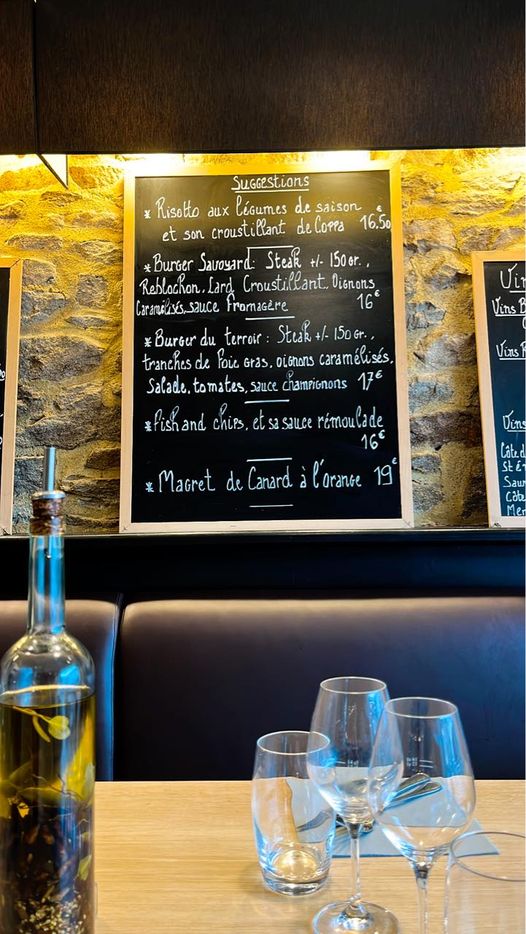 Suggestions
* Risotto aux légumes de saison
et son croustillant de Coppa 16.50€
* Burger Savoyard: Steak +/- 150 gr.,
Reblochon, Lard Croustillant, Oignons
Caramélisés, sauce Fromagère 16€
* Burger du terroir: Steak +/- 150 gr.,
tranches de Foie Gras, oignons caramélisés,
Salade, tomates, sauce champignons 17€
* Fish and chips, et sa sauce rémoulade
16€
* Magret de Canard à l'Orange 19€
Vins B
Vins
Côte d
St é
Sau
Côte
Mer